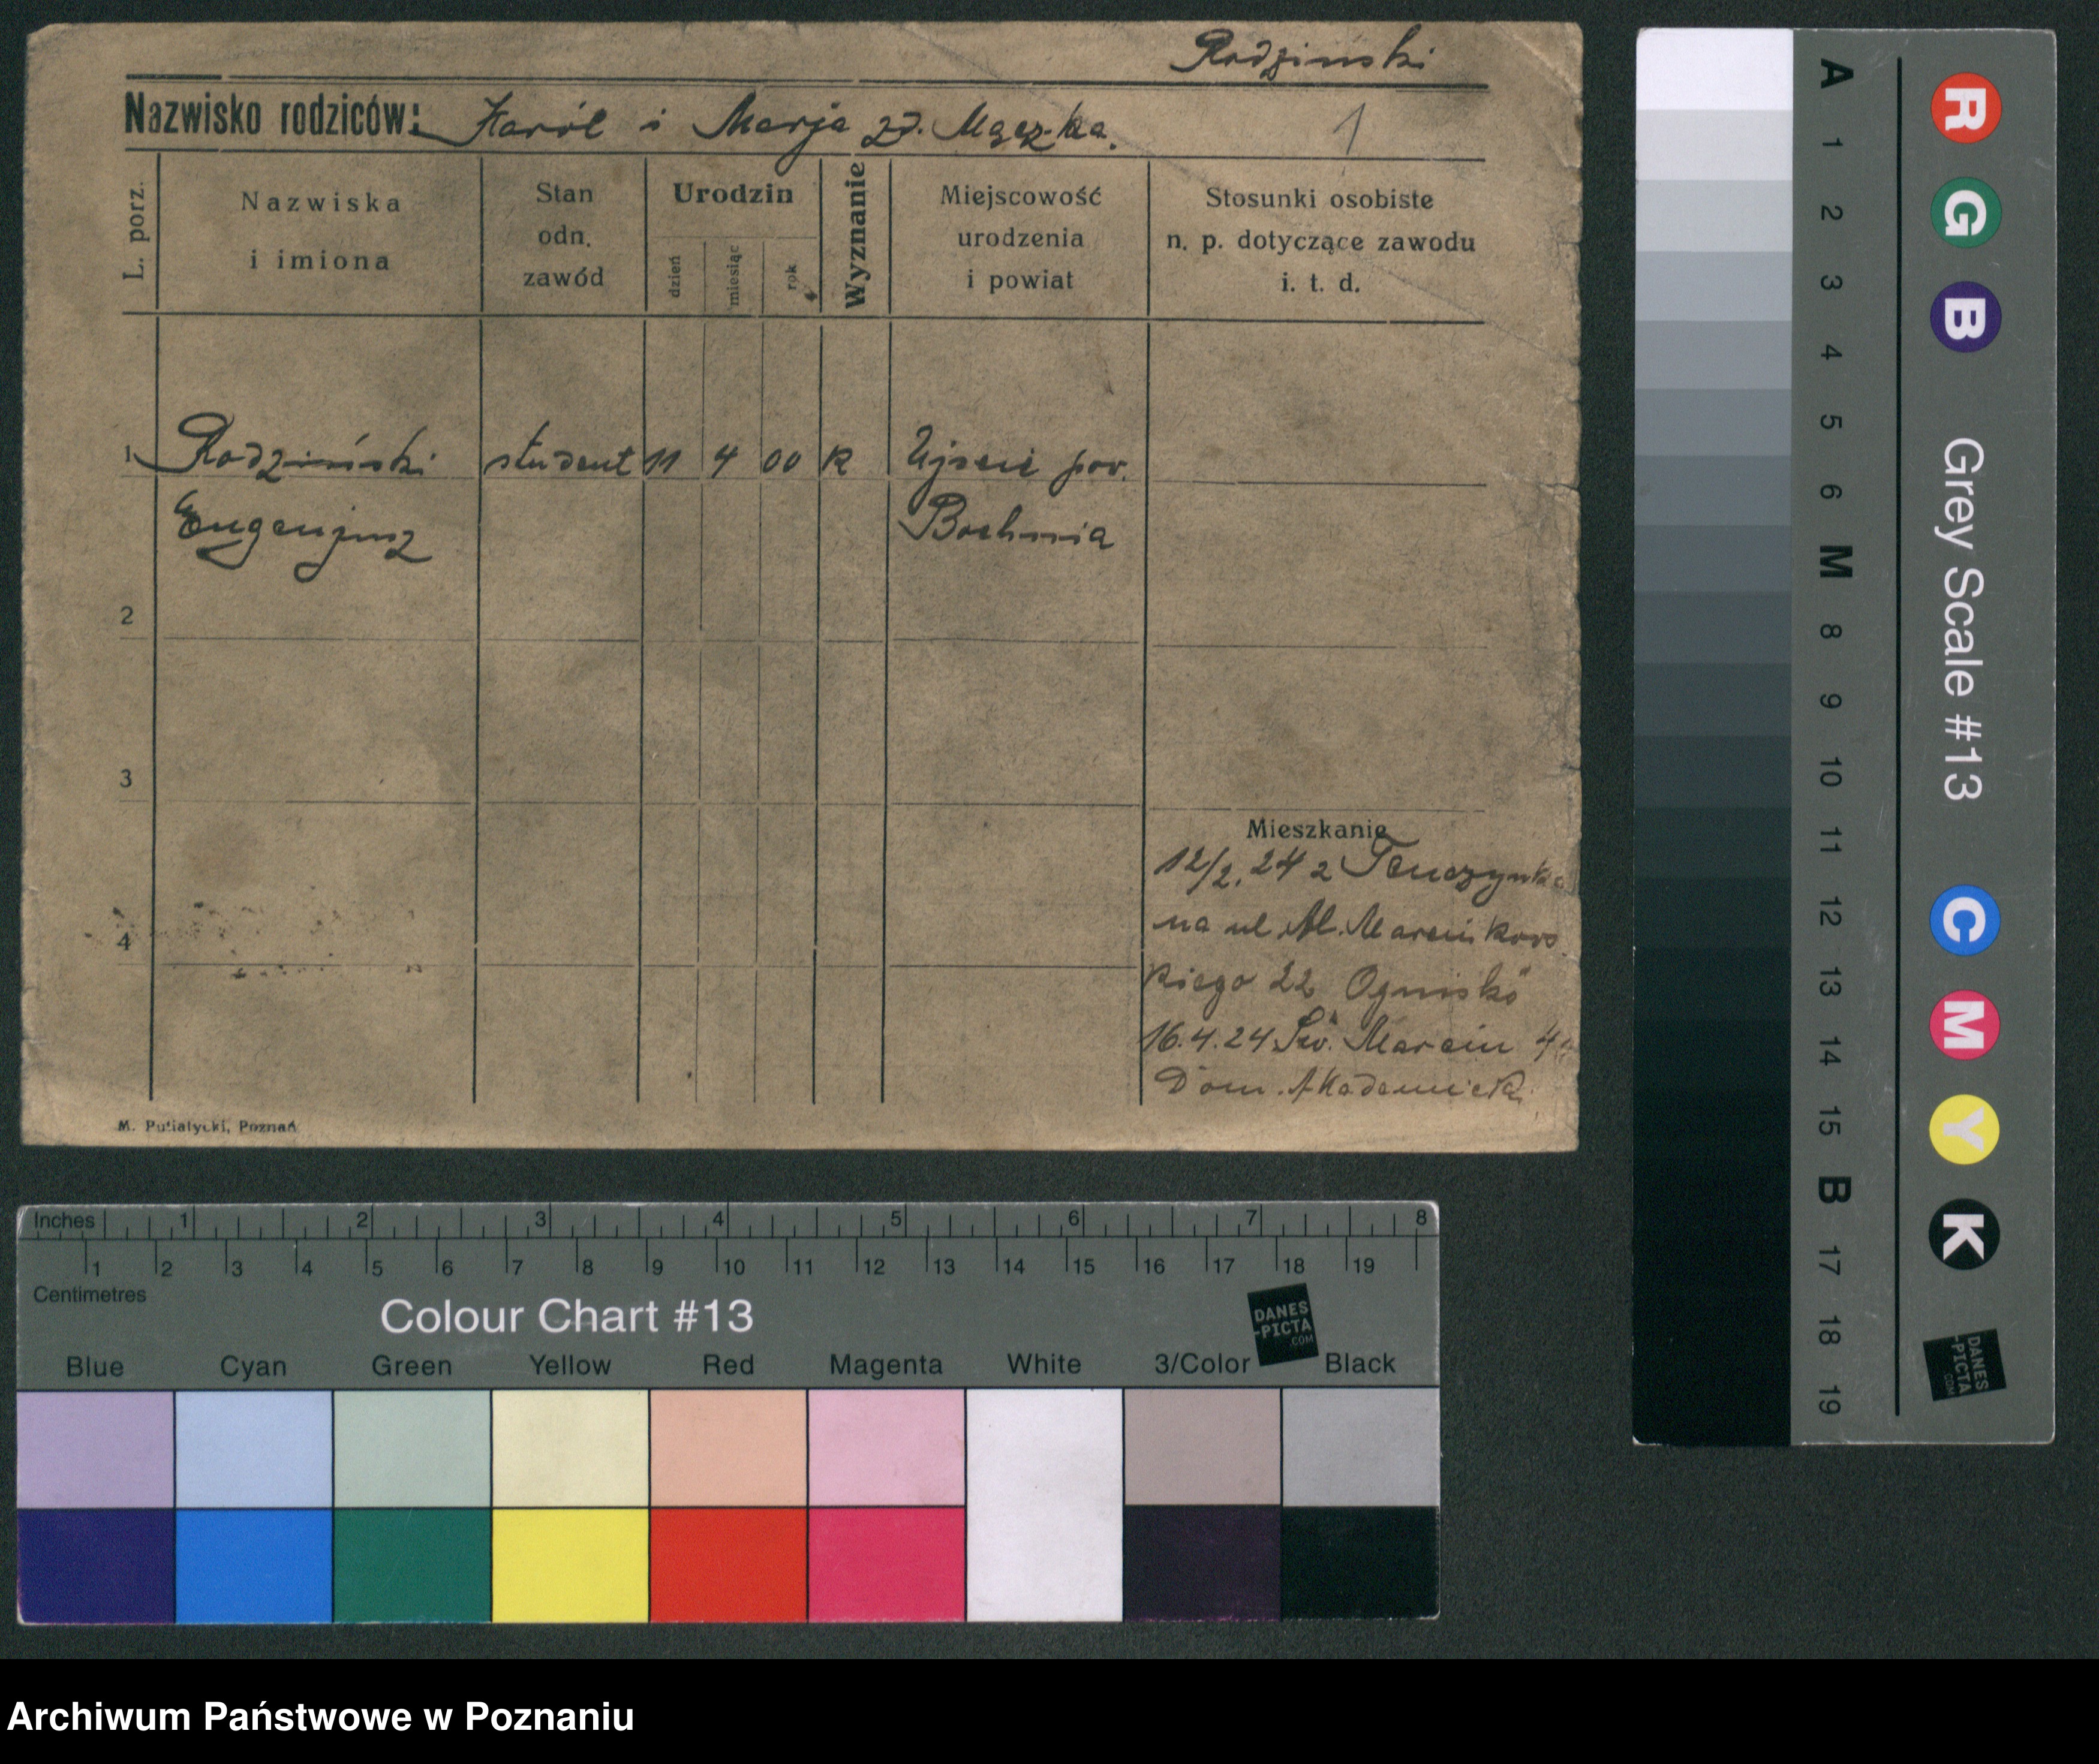 Rodziński
Nazwisko rodziców: Karól i Marja zd. Mączka.
1
L. porz.
Nazwiska
i imiona
Stan
odn.
zawód
Urodzin
dzień
miesiąc
rok
Wyznanie
Miejscowość
urodzenia
i powiat
Stosunki osobiste
n. p. dotyczące zawodu
i. t. d.
1 Rodziński student 11 4 00 R Ujście pow.
Eugenjusz Bochnia
2
3
4
Mieszkanie
12/2. 24 z Tenczynka
na ul Al. Marcinkows
kiego 22 Ognisko
16.4.24 Św. Marcin
Dom. Akademick.
M. Putiatycki, Poznań
Inches 1 2 3 4 5 6 7 8
1 2 3 4 5 6 7 8 9 10 11 12 13 14 15 16 17 18 19
Centimetres
Colour Chart #13
DANES
-PICTA
.COM
Blue Cyan Green Yellow Red Magenta White 3/Color Black
R G B Grey Scale #13 C M Y K
A 1 2 3 4 5 6 M 8 9 10 11 12 13 14 15 B 17 18 19
DANES
-PICTA
.COM
Archiwum Państwowe w Poznaniu